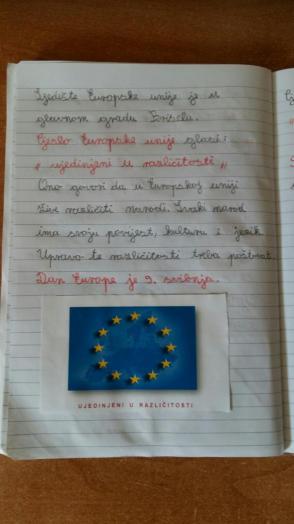 Sjedište Europske unije je u
glavnom gradu Brislu.
Geslo Europske unije glasi:
„ ujedinjeni u različitosti „
Ono govori da u Europskoj uniji
žive različiti narodi. Svaki narod
ima svoju povijest, kulturu i jezik
Upravo te različitosti treba poštivat.
Dan Europe je 9. svibnja.
UJEDINJENI U RAZLIČITOSTI